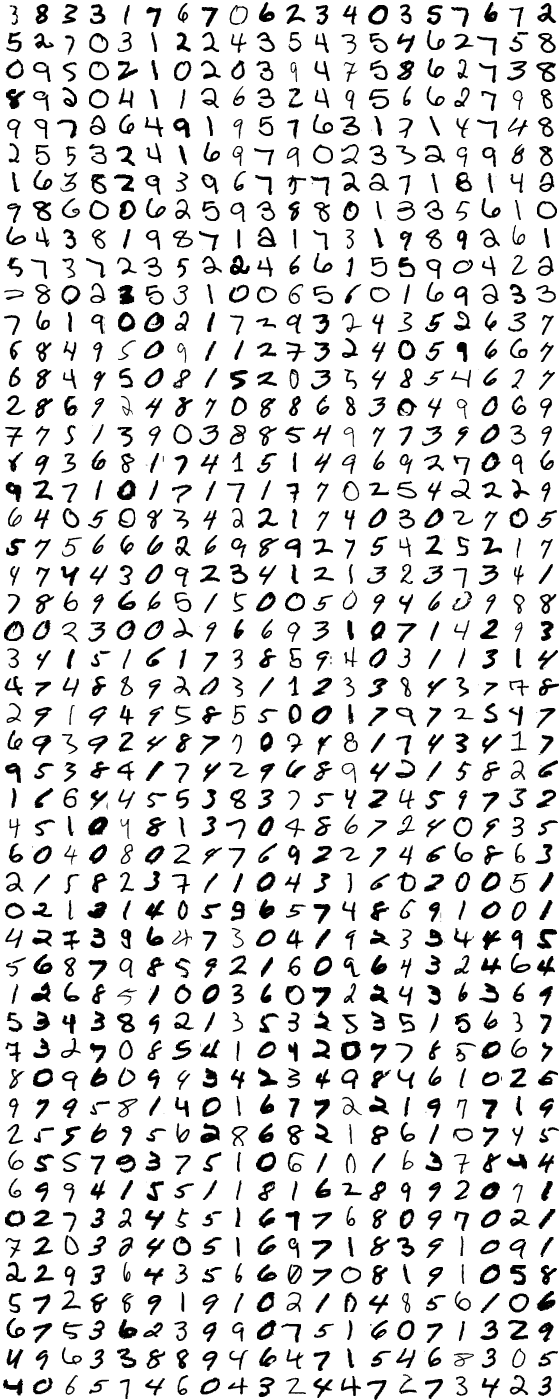 3 8 3 3 1 7 6 7 0 6 2 3 4 0 3 5 7 6 7 2
5 2 7 0 3 1 2 2 4 3 5 4 3 5 4 6 2 7 5 8
0 9 5 0 2 1 0 2 0 3 9 4 7 5 8 6 2 7 3 8
8 9 2 0 4 1 1 2 6 3 2 4 9 5 6 6 2 7 9 8
9 9 7 2 6 4 9 1 9 5 7 6 3 1 7 1 4 7 4 8
2 5 5 3 2 4 1 6 9 7 9 0 2 3 3 2 9 9 8 8
1 6 3 8 2 9 3 9 6 7 5 7 2 2 7 1 8 1 4 2
9 8 6 0 0 6 2 5 9 3 8 8 0 1 3 3 5 6 1 0
6 4 3 8 1 9 8 7 1 2 1 7 3 1 9 8 9 2 6 1
5 7 3 7 2 3 5 2 2 4 6 6 1 5 5 9 0 4 2 2
8 0 2 3 5 3 1 0 0 6 5 6 0 1 6 9 2 3 3
7 6 1 9 0 0 2 1 7 2 9 3 2 4 3 5 2 6 3 7
6 8 4 9 5 0 9 1 1 2 7 3 2 4 0 5 9 6 6 7
6 8 4 9 5 0 8 1 5 2 0 3 5 4 8 5 4 6 2 7
2 8 6 9 2 4 8 7 0 8 8 6 8 3 0 4 9 0 6 9
7 7 5 1 3 9 0 3 8 8 5 4 9 7 7 3 9 0 3 9
8 9 3 6 8 1 7 4 1 5 1 4 9 6 9 2 7 0 9 6
9 2 7 1 0 1 7 1 7 1 7 7 0 2 5 4 2 2 2 9
6 4 0 5 0 8 3 4 2 2 1 7 4 0 3 0 2 7 0 5
5 7 5 6 6 6 2 6 9 8 9 2 7 5 4 2 5 2 1 7
4 7 4 4 3 0 9 2 3 4 1 2 1 3 2 3 7 3 4 1
7 8 6 9 6 6 5 1 5 0 0 5 0 9 4 6 0 9 8 8
0 0 2 3 0 0 2 9 6 6 9 3 1 0 7 1 4 2 9 3
3 4 1 5 1 6 1 7 3 8 5 9 4 0 3 1 1 3 1 4
4 7 4 8 8 9 2 0 3 1 1 2 3 3 8 4 3 7 7 8
2 9 1 9 4 9 5 8 5 5 0 0 1 7 9 7 2 5 4 7
6 9 3 9 2 4 8 7 7 0 7 4 8 1 7 4 3 4 1 7
9 5 3 8 4 1 7 4 2 9 6 8 9 4 2 1 5 8 2 6
1 6 6 4 4 5 5 3 8 3 7 5 4 2 4 5 9 7 3 2
4 5 1 0 9 8 1 3 7 0 4 8 6 7 2 4 0 9 3 5
6 0 4 0 8 0 2 9 7 6 9 2 2 7 4 6 6 8 6 3
2 1 5 8 2 3 7 1 1 0 4 3 1 6 0 2 0 0 5 1
0 2 1 3 1 4 0 5 9 6 5 7 4 8 6 9 1 0 0 1
4 2 7 3 9 6 4 7 3 0 4 1 9 2 3 3 4 4 9 5
5 6 8 7 9 8 5 9 2 1 6 0 9 6 4 3 2 4 6 4
1 2 6 8 5 1 0 0 3 6 0 7 2 2 4 3 6 3 6 9
5 3 4 3 8 9 2 1 3 5 3 2 5 3 5 1 5 6 3 7
7 3 2 7 0 8 5 4 1 0 4 2 0 7 7 8 5 0 6 7
8 0 9 6 0 9 9 3 4 2 3 4 9 8 4 6 1 0 2 6
9 7 9 5 8 1 4 0 1 6 7 7 2 2 1 9 7 7 1 9
2 5 5 6 9 5 6 2 8 6 8 2 1 8 6 1 0 7 4 5
6 5 5 7 9 3 7 5 1 0 6 1 0 1 6 3 7 8 4 4
6 9 9 4 1 5 5 1 1 8 1 6 2 8 9 9 2 0 7 1
0 2 7 3 2 4 5 5 1 6 7 7 6 8 0 9 7 0 2 1
7 2 0 3 2 4 0 5 1 6 9 7 1 8 3 9 1 0 9 1
2 2 9 3 6 4 3 5 6 6 0 7 0 8 1 9 1 0 5 8
5 7 2 8 8 9 1 9 1 0 2 1 0 4 8 5 6 1 0 6
6 7 5 3 6 2 3 9 9 0 7 5 1 6 0 7 1 3 2 9
4 9 6 3 3 8 8 9 4 6 4 7 1 5 4 6 8 3 0 5
4 0 6 5 7 4 6 0 4 3 2 4 4 7 2 7 3 4 2 3